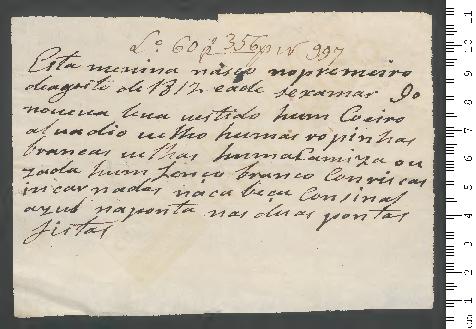 Lº 60 p 356 nº 997
Esta menina nasço nopremeiro
deagosto de 1812 eade sexamar Do
novena leva vestido hum Coeiro
alvadio velho humas ropinhas
brancas velhas huma Camiza ou
zada hum Lenço branco Conriscas
incarnadas naca beça Consinal
azul naponta nas duas pontas
fistas